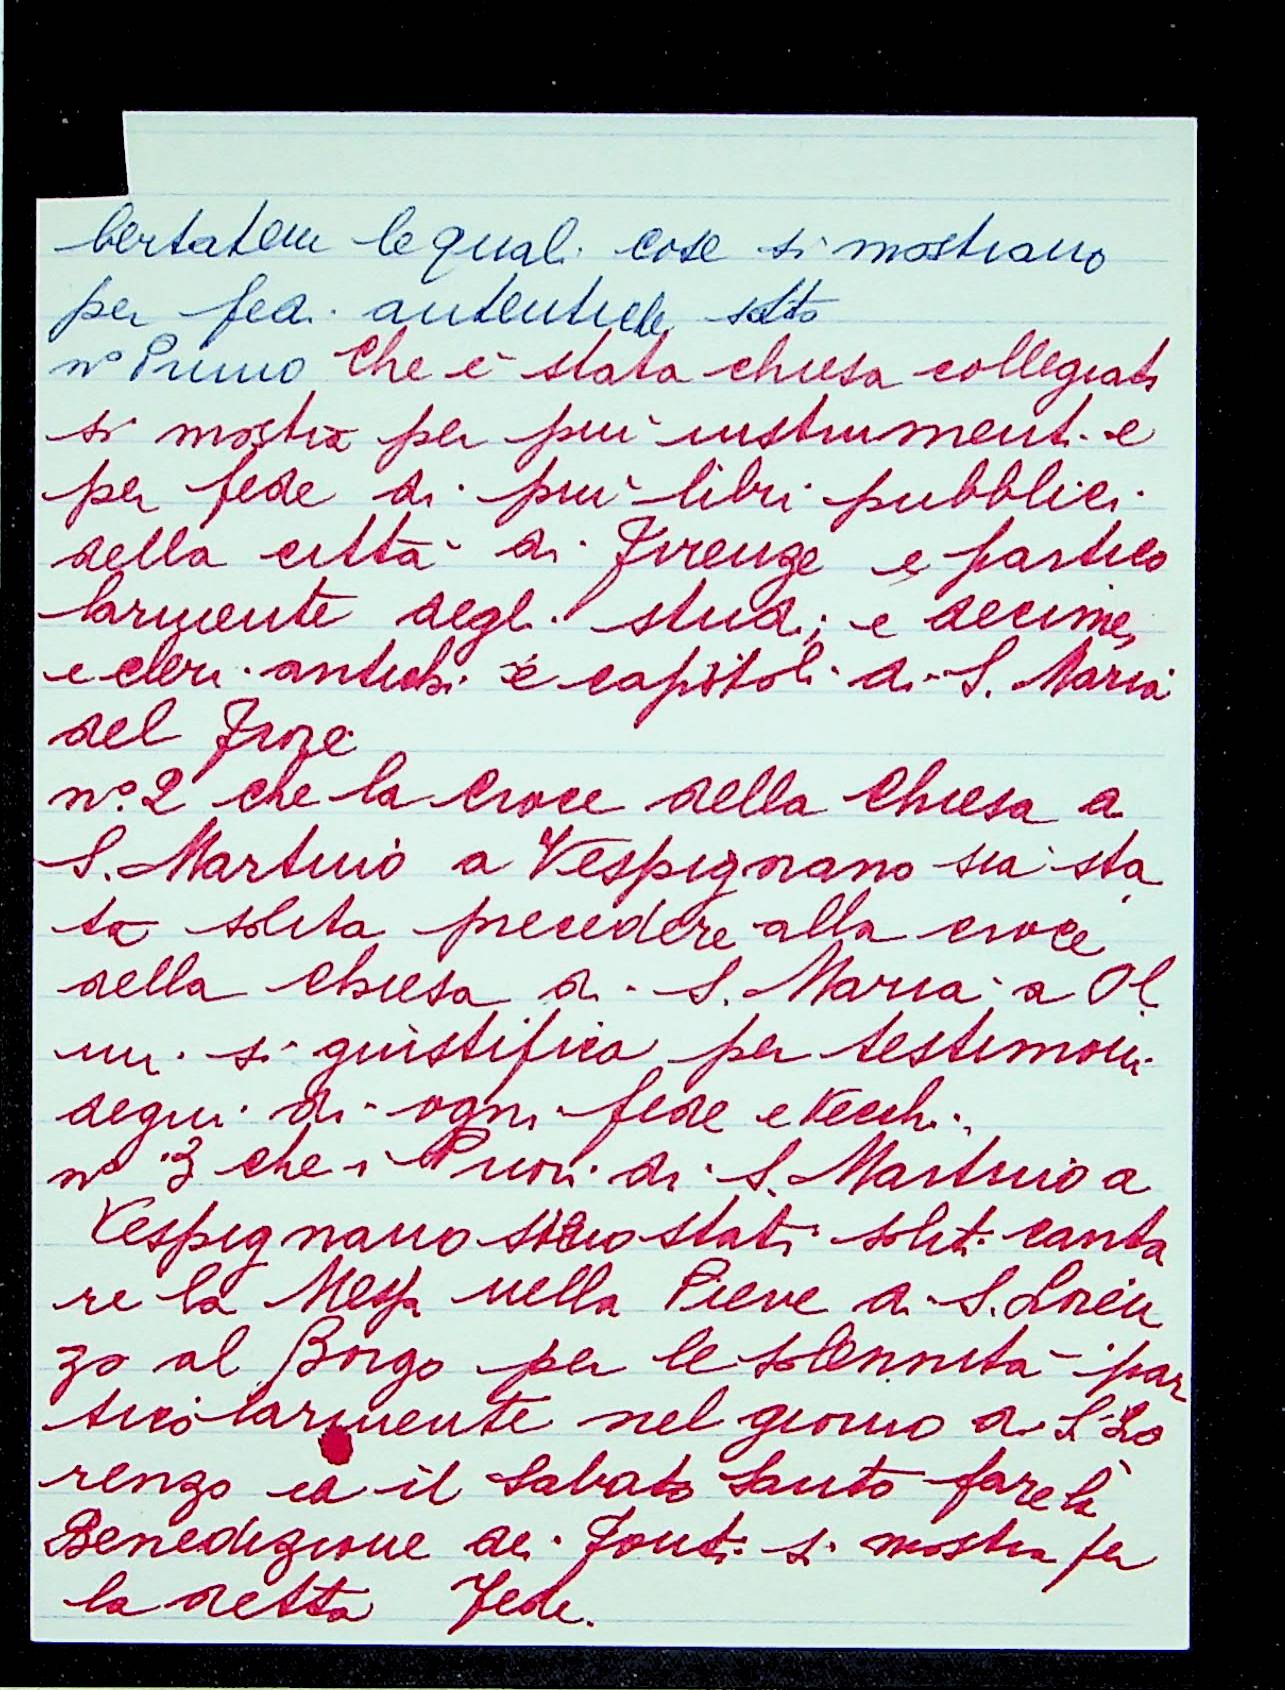 bertatem le quali cose si mostrano
per fedi autentiche sotto
n° Primo Che è stata chiesa collegiata
si mostra per più instrumenti e
per fede di più libri pubblici
della città di Firenze e partico
larmente degli studi; e decime,
e cleri antichi e capitoli di S. Maria
del Fiore
n° 2 che la croce della Chiesa a
S. Martino a Vespignano sia sta
ta solita precedere alla croce
della chiesa di S. Maria a Ol
mi si giustifica per testimoni
degni di ogni fede e vecchi.
n° 3 che i Priori di S. Martino a
Vespignano sieno stati soliti canta
re la Messa nella Pieve di S. Loren
zo al Borgo per le solennità par
ticolarmente nel giorno di S. Lo
renzo ed il Sabato Santo fare la
Benedizione dei Fonti si mostra per
la detta Fede.